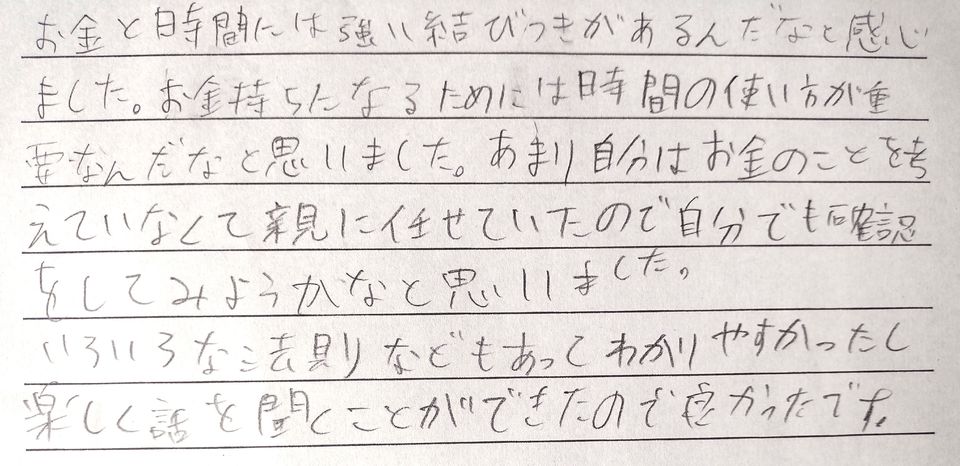 お金と時間には強い結びつきがあるんだなと感じ
ました。お金持ちになるためには時間の使い方が重
要なんだなと思いました。あまり自分はお金のことを考
えていなくて親に任せていたので自分でも確認
をしてみようかなと思いました。
いろいろな法則などもあってわかりやすかったし
楽しく話を聞くことができたので良かったです。